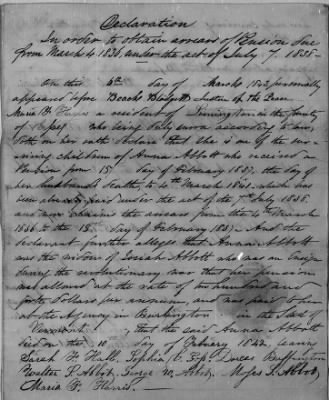 Declaration
In order to obtain arrears of Pension due
from March 4 1836, under the act of July 7. 1838.
On this 4th day of March 1843 personally
appeared before Beach Blodgett Justice of the Peace
Maria F. Harris a resident of Lemington in the County
of Essex who being duly sworn according to law,
doth on her oath declare that she is one of the sur-
viving children of Anna Abbott who received a
Pension from 15th day of February 1837, the day of
her husband's death, to 4th March 1841, which has
been already paid under the act of the 7th July 1838,
and now claims the arrears from the 4th March
1836 to the 15th day of February 1837. And the
declarant further alleges that Anna Abbott
was the widow of Josiah Abbott who was an Ensign
during the revolutionary war that her pension
was allowed at the rate of two hundred and
forty Dollars per annum, and was paid to her
at the Agency in Burlington in the State of
Vermont, that the said Anna Abbott
died on the 10 day of February 1842, leaving
Sarah H Hall, Sophia Lucas Buffington
Walter P. Abbott, George W. Abbott, Moses S. Abbott,
Maria F. Harris.